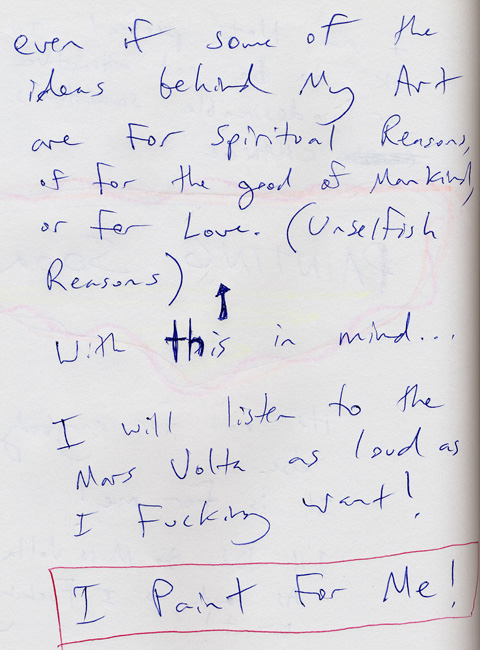 even if some of the
ideas behind My Art
are For Spiritual Reasons,
of for the good of Mankind,
or for Love. (Unselfish
Reasons)
With this in mind...
I will listen to the
Mars Volta as loud as
I Fucking want!
I Paint For Me!